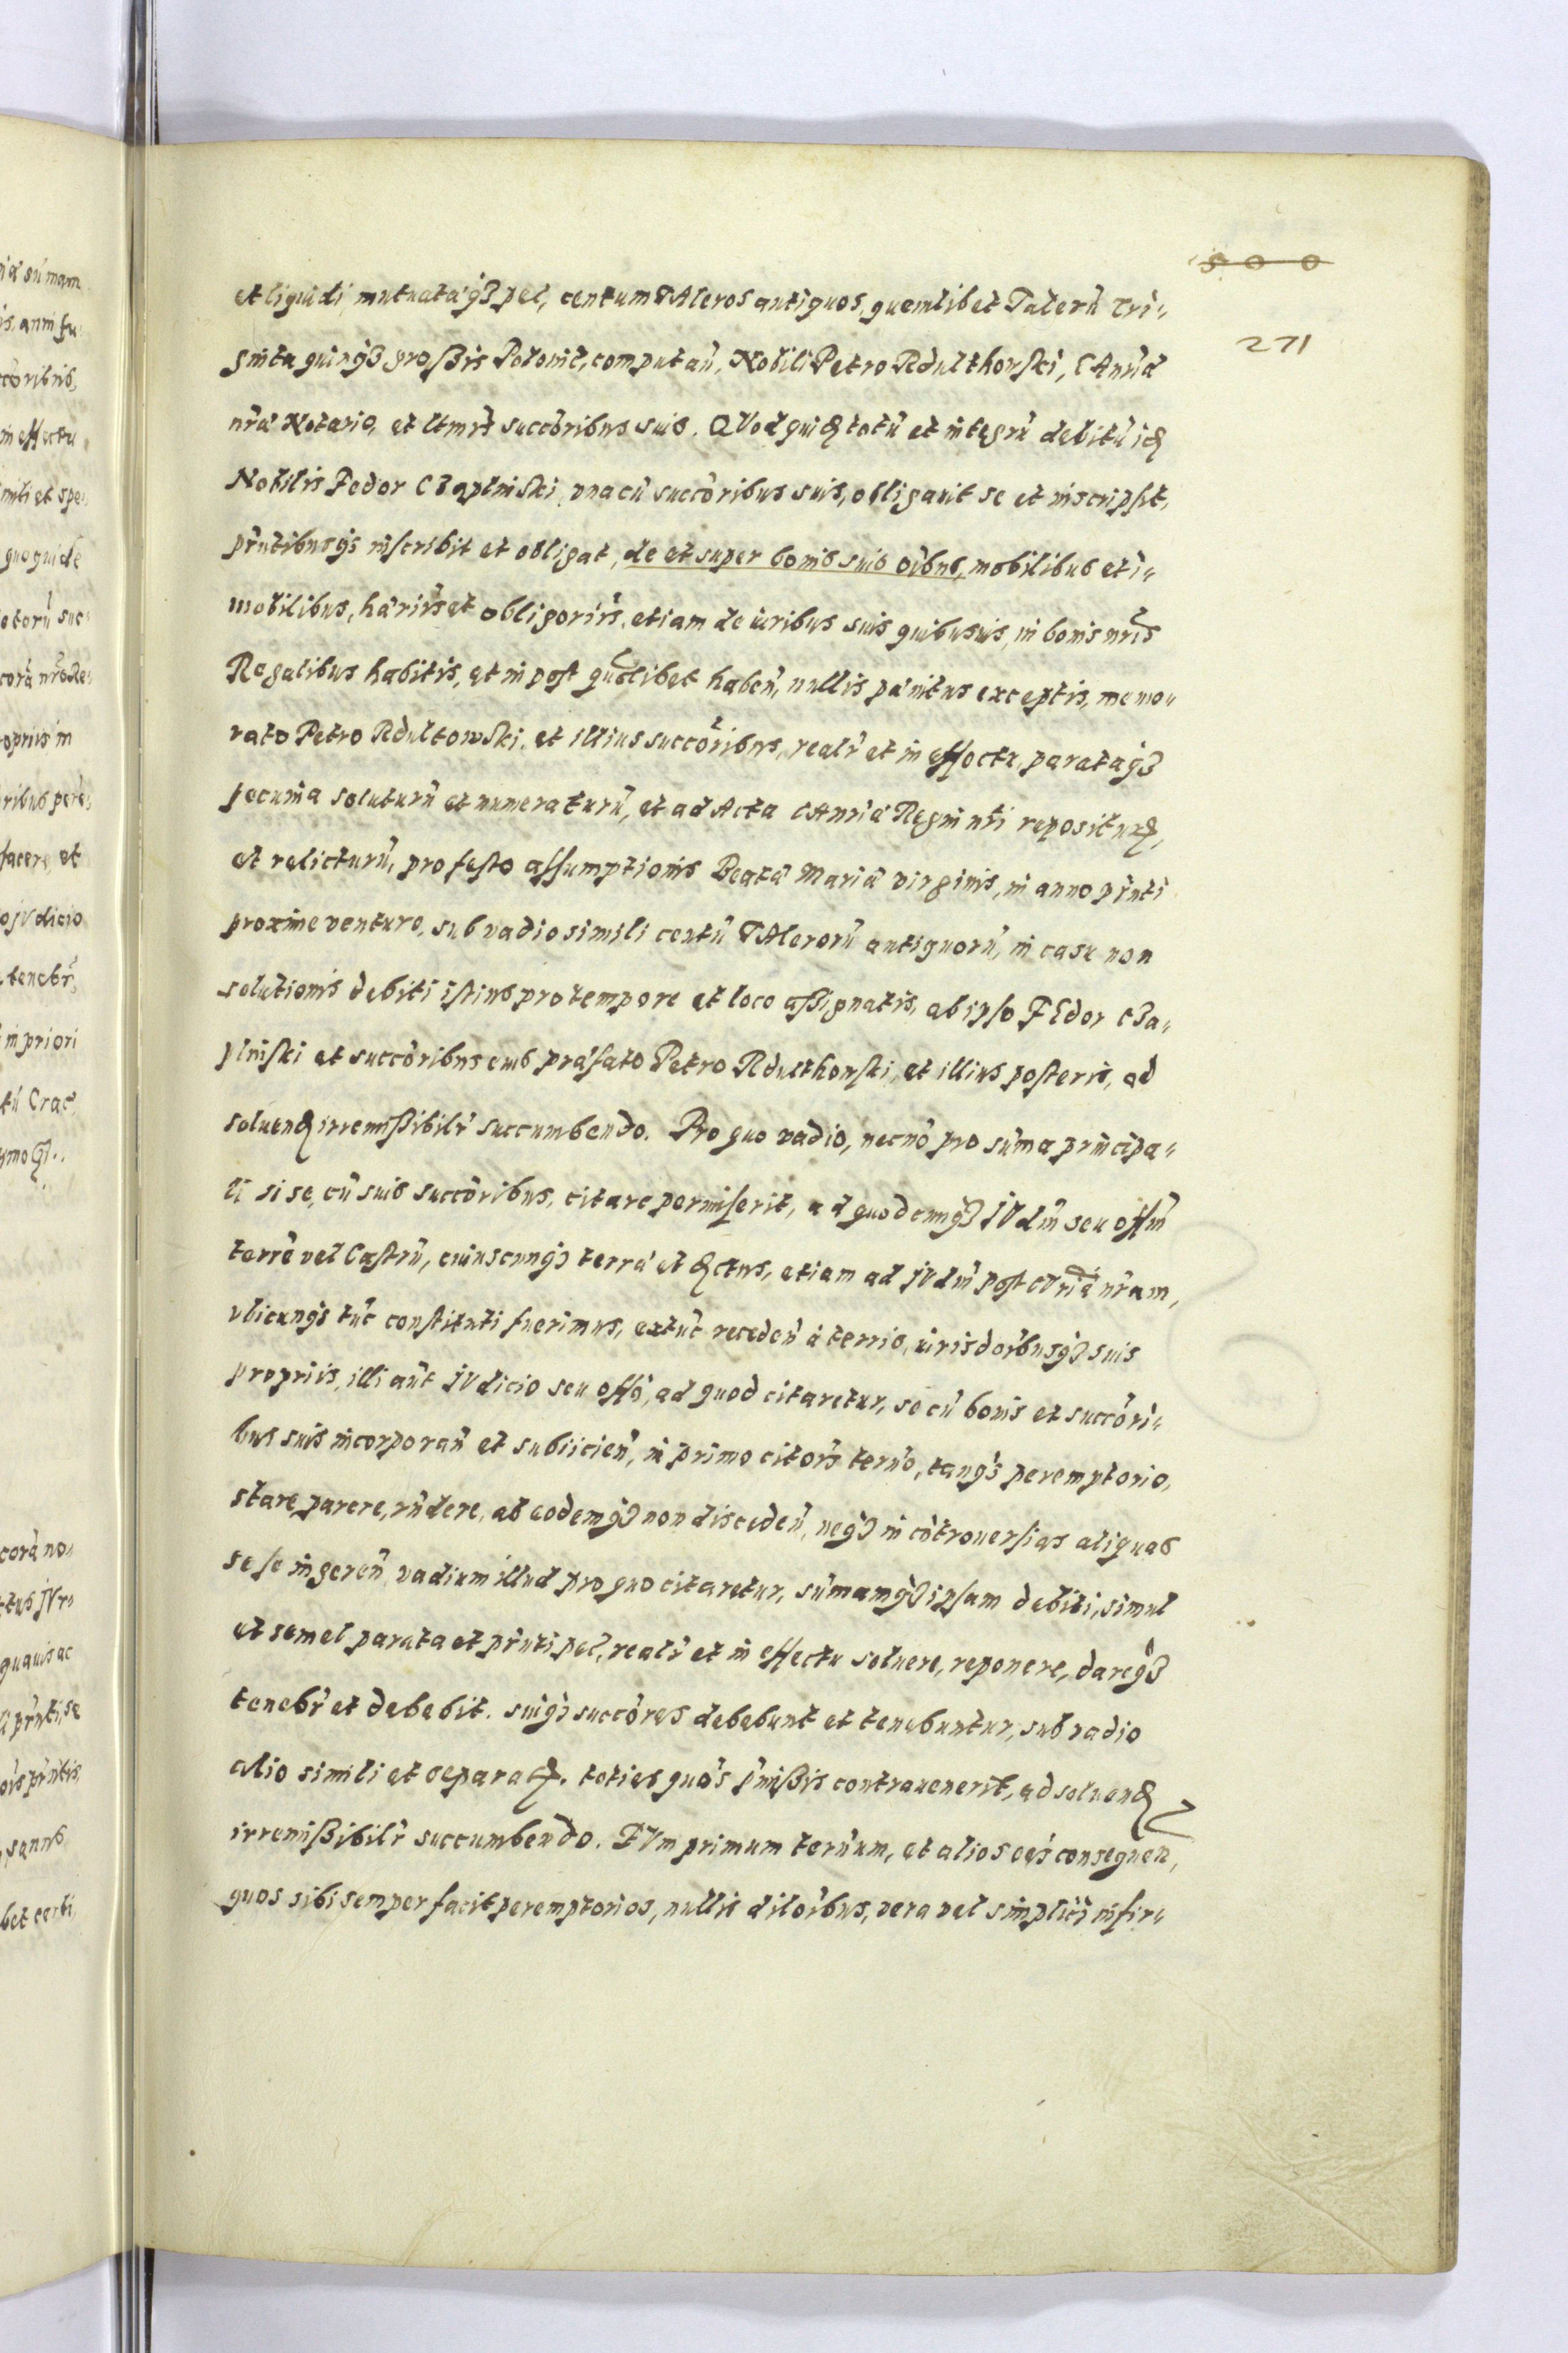 500
271
et liquidi, mutuatáq3 pec, centum TAleros antiquos, quemlibet Talerũ Tri-
ginta quinq3 großis Polonic, computañ, Nobili Petro Rdulthowski, CAnriæ
nræ Notario, et ltmis succoribus suis. QVod quid totũ et integrũ debitũ id
Nobilis Fedor CZaplinski vna cũ succoribus suis, obligauit se et inscripsit,
pñtibusq3 inscribit et obligat, de et super bonis suis oibus, mobilibus et i-
mobilibus, hæriis et obligoriis, etiam de iuribus suis quibusuis, in bonis nris
Regalibus habitis, et in post quolibet habeñ, nullis pænitus exceptis, memo-
rato Petro Rdultowski, et illius succoribus, realr et in effectu, parataq3
pecunia soluturũ et numeraturũ, et ad Acta CAnriæ Regni nri repositurũ,
et relicturũ, pro festo assumptionis Beatæ Mariæ virginis, in anno pñti
proxime venturo, sub vadio simili centũ TAlerorũ antiquorũ, in casu non
solutionis debiti istius pro tempore et loco aßignatis, ab ipso FEdor CZa-
plinski et succoribus eius præfato Petro Rdulthowski, et illius posteris, ad
soluend irremißibilr succumbendo. Pro quo vadio, necnõ pro sũma principa-
li si se, cũ suis succoribus, citare permiserit, ad quodcunq3 JVdm seu offm
terrẽ vel Castrũ, cuiuscunq3 terræ et dctus, etiam ad JVdm post CVriã nram,
vbicunq3 tũc constituti fuerimus, extũc recedeñ à terris, iurisdoribusq3 suis
propriis, illi aũt JVdicio seu offo, ad quod citaretur, se cũ bonis et succori-
bus suis incorporañ et subiicieñ, in primo citois terño, tanq3 peremptorio,
stare, parere, rñdere, ab eodemq3 non discedeñ, neq3 in cõtrouersias aliquas
sese ingereñ, vadium illud pro quo citaretur, sũmamq3 ipsam debiti, simul
et semel parata et pñti pec, realr et in effectu soluere, reponere, dareq3
tenebr et debebit. suiq3 succores debebunt et tenebuntur, sub vadio
alio simili et separat. toties quots pmißis contrauenerit, ad soluend
irremißibilr succumbendo. TVm primum terñum, et alios oes consequeñ,
quos sibi semper facit peremptorios, nullis diloibus, vera vel simplici infir-